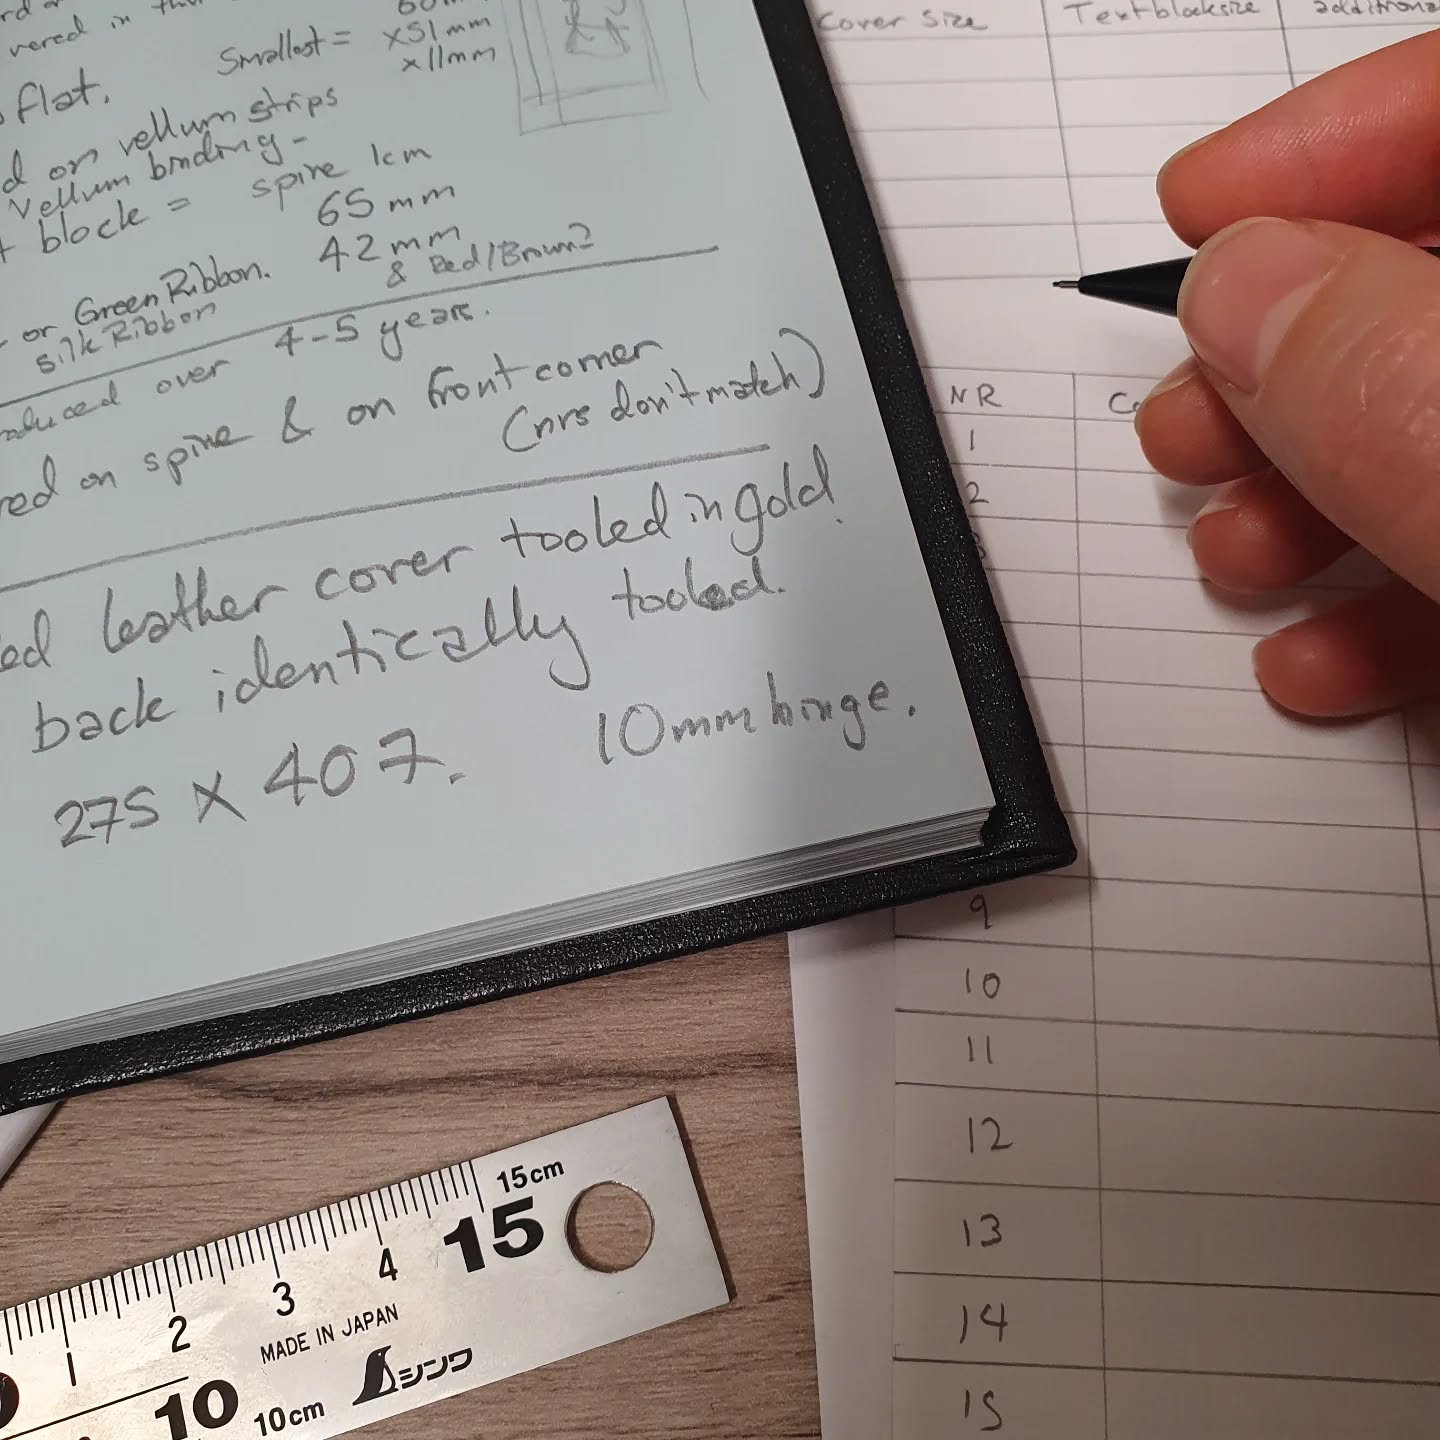 vered in
60m
Smallest = x51mm
x11mm
flat.
d on vellum strips
vellum binding-
block = spine 1cm
65mm
42mm
or Green Ribbon. & Red/Brown?
silk Ribbon
oduced over 4-5 years.
red on spine & on front corner
(nrs don't match)
ed leather cover tooled in gold.
back identically tooled.
275 x 407. 10mm hinge.
Cover Size Textblocksize additional
NR Co
1
2
3
9
10
11
12
13
14
15
15cm
15
1 2 3 4
MADE IN JAPAN
シンワ
10 10cm